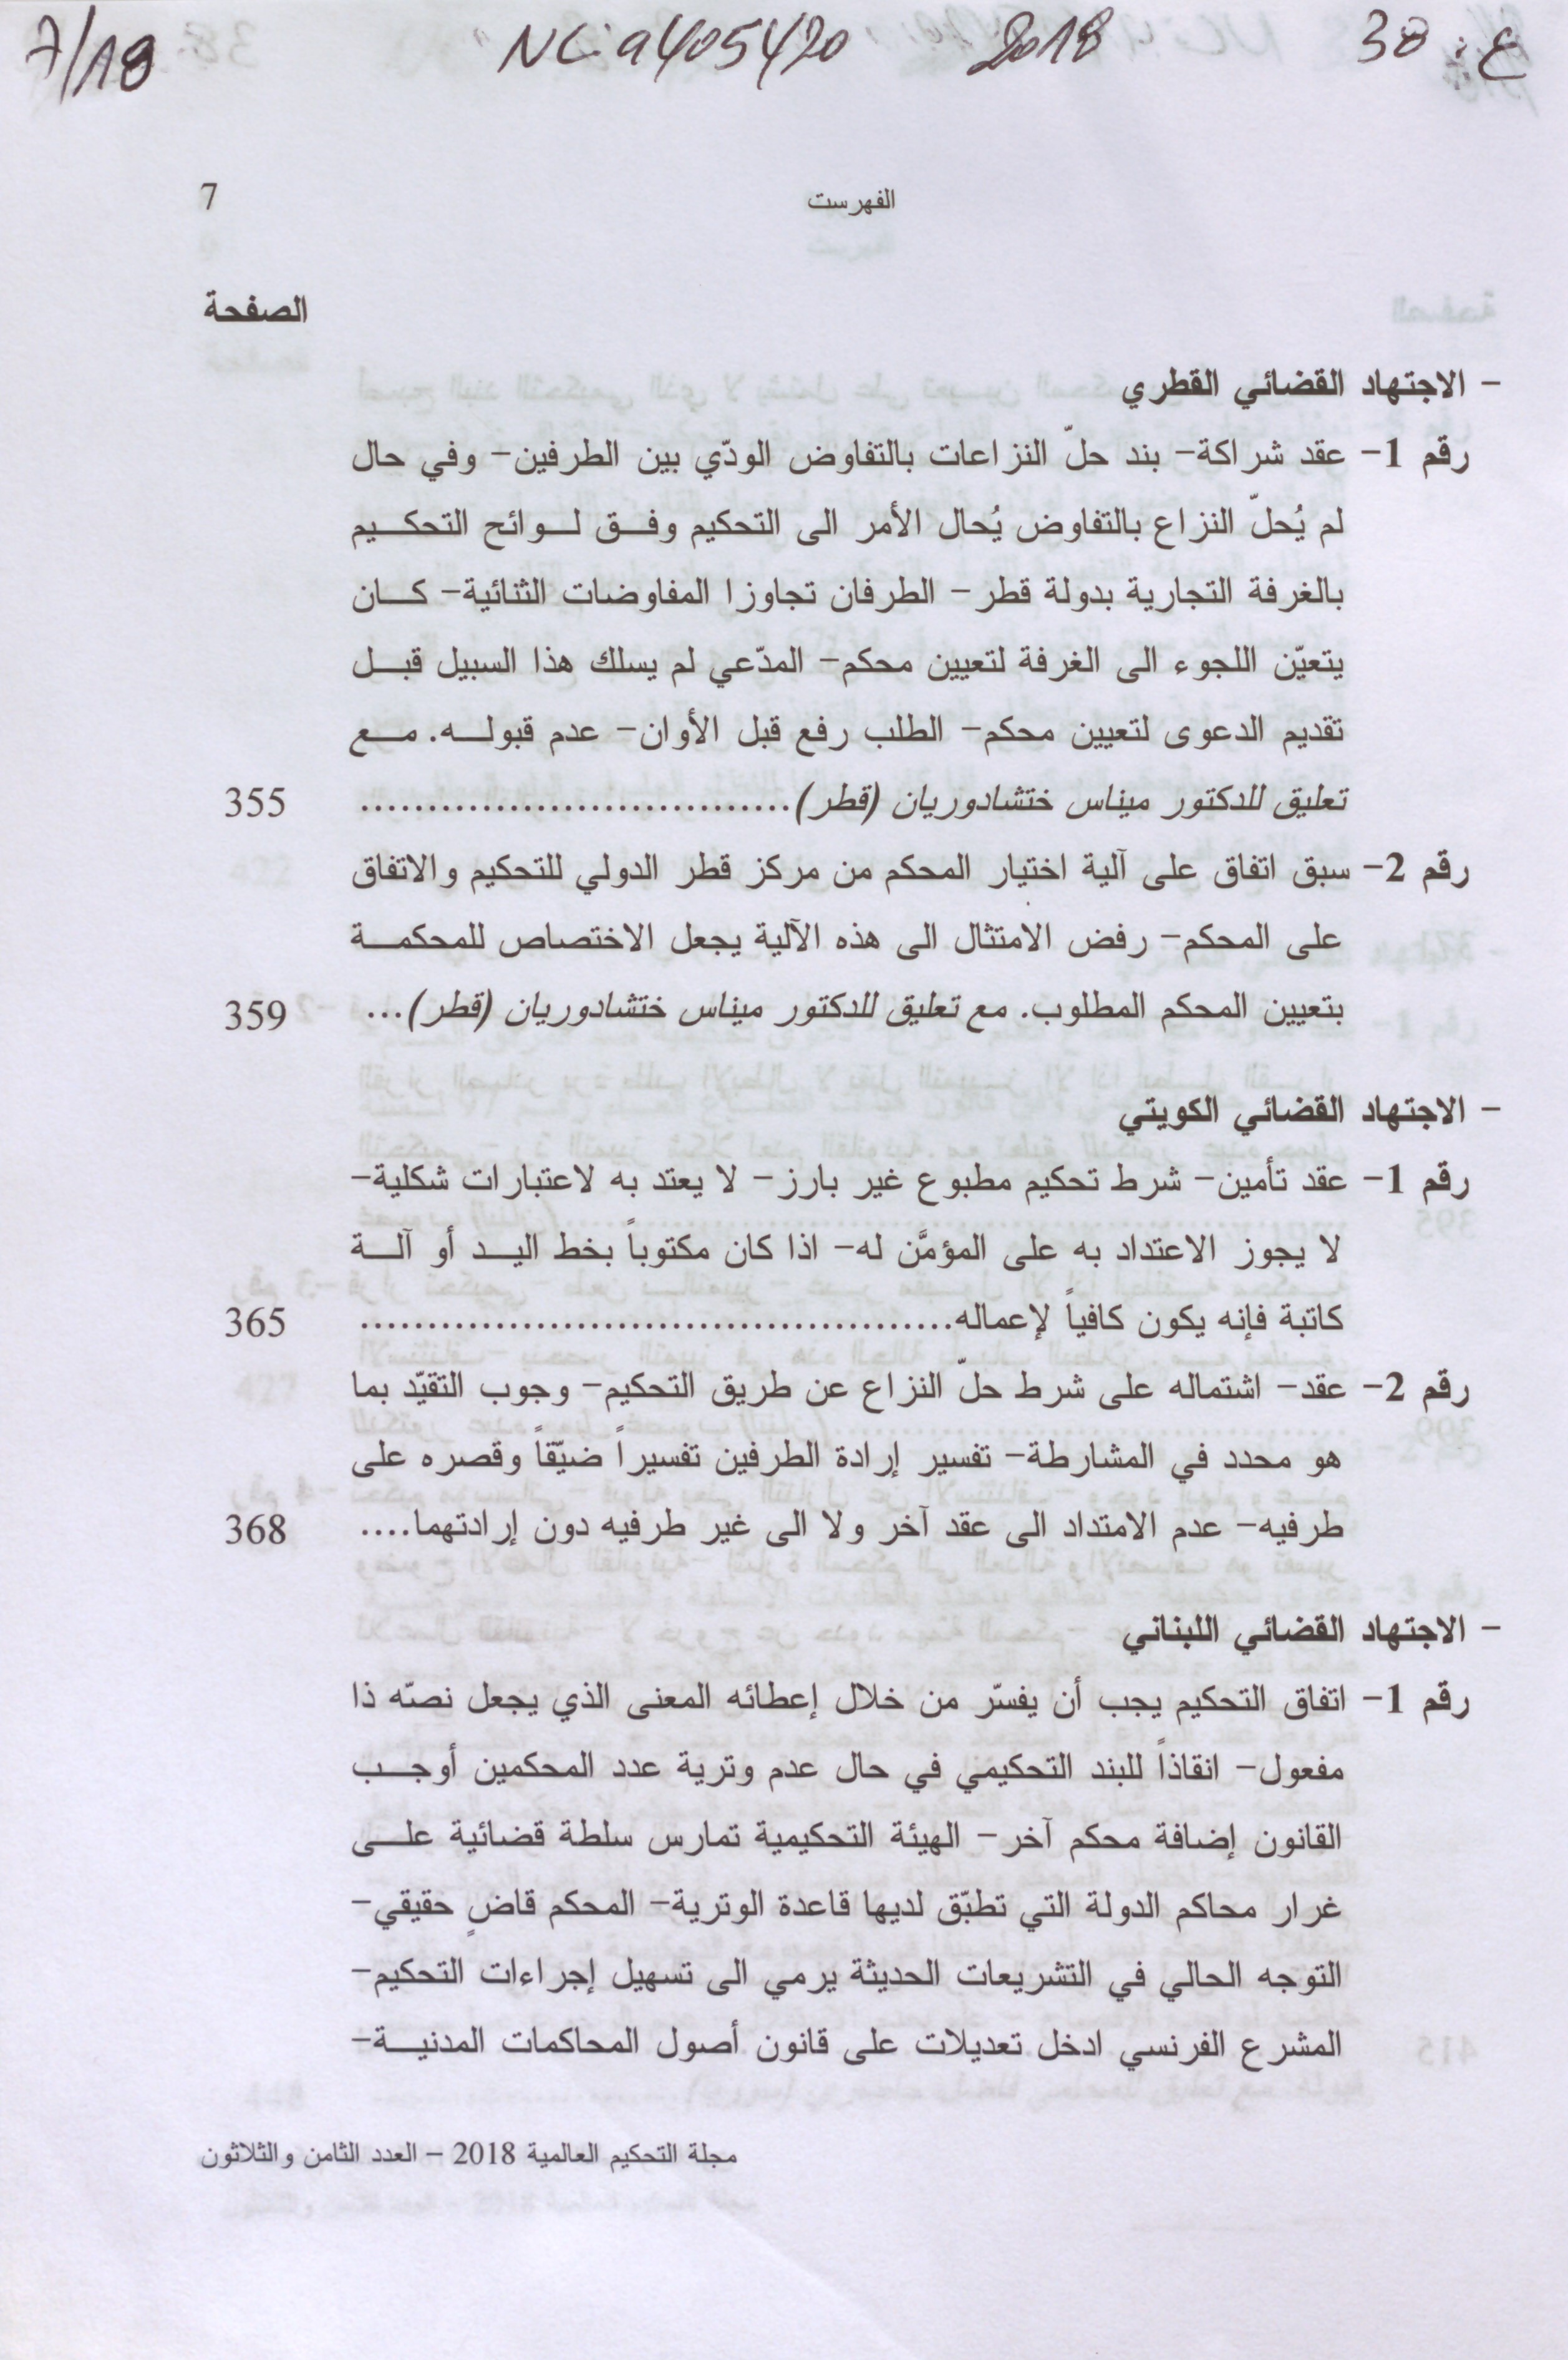 ع: 38 2018 NC: 9405420 7/18
الفهرست 7
الصفحة
- الاجتهاد القضائي القطري
رقم 1- عقد شراكة- بند حلّ النزاعات بالتفاوض الودّي بين الطرفين- وفي حال
لم يُحلّ النزاع بالتفاوض يُحال الأمر الى التحكيم وفق لوائح التحكيم
بالغرفة التجارية بدولة قطر- الطرفان تجاوزا المفاوضات الثنائية- كان
يتعيّن اللجوء الى الغرفة لتعيين محكم- المدّعي لم يسلك هذا السبيل قبل
تقديم الدعوى لتعيين محكم- الطلب رفع قبل الأوان- عدم قبوله. مع
تعليق للدكتور ميناس ختشادوريان (قطر)................................ 355
رقم 2- سبق اتفاق على آلية اختيار المحكم من مركز قطر الدولي للتحكيم والاتفاق
على المحكم- رفض الامتثال الى هذه الآلية يجعل الاختصاص للمحكمة
بتعيين المحكم المطلوب. مع تعليق للدكتور ميناس ختشادوريان (قطر)... 359
- الاجتهاد القضائي الكويتي
رقم 1- عقد تأمين- شرط تحكيم مطبوع غير بارز- لا يعتد به لاعتبارات شكلية-
لا يجوز الاعتداد به على المؤمَّن له- اذا كان مكتوباً بخط اليد أو آلة
كاتبة فإنه يكون كافياً لإعماله............................................ 365
رقم 2- عقد- اشتماله على شرط حلّ النزاع عن طريق التحكيم- وجوب التقيّد بما
هو محدد في المشارطة- تفسير إرادة الطرفين تفسيراً ضيّقاً وقصره على
طرفيه- عدم الامتداد الى عقد آخر ولا الى غير طرفيه دون إرادتهما.... 368
- الاجتهاد القضائي اللبناني
رقم 1- اتفاق التحكيم يجب أن يفسّر من خلال إعطائه المعنى الذي يجعل نصّه ذا
مفعول- انقاذاً للبند التحكيمي في حال عدم وترية عدد المحكمين أوجب
القانون إضافة محكم آخر- الهيئة التحكيمية تمارس سلطة قضائية على
غرار محاكم الدولة التي تطبّق لديها قاعدة الوترية- المحكم قاضٍ حقيقي-
التوجه الحالي في التشريعات الحديثة يرمي الى تسهيل إجراءات التحكيم-
المشرع الفرنسي ادخل تعديلات على قانون أصول المحاكمات المدنية-
مجلة التحكيم العالمية 2018 – العدد الثامن والثلاثون